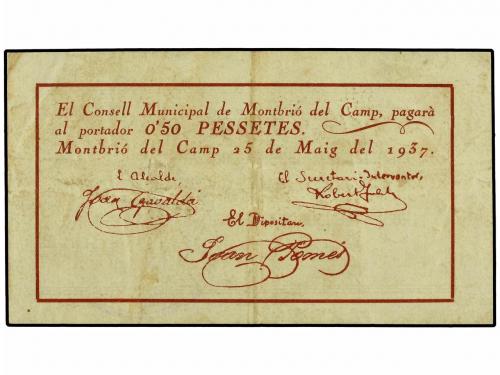 El Consell Municipal de Montbrió del Camp, pagarà
al portador 0'50 PESSETES.
Montbrió del Camp 25 de Maig del 1937.
L'Alcalde
El Secretari-Interventor,
Joan
Robert
El Dipositari,
Joan Gomés